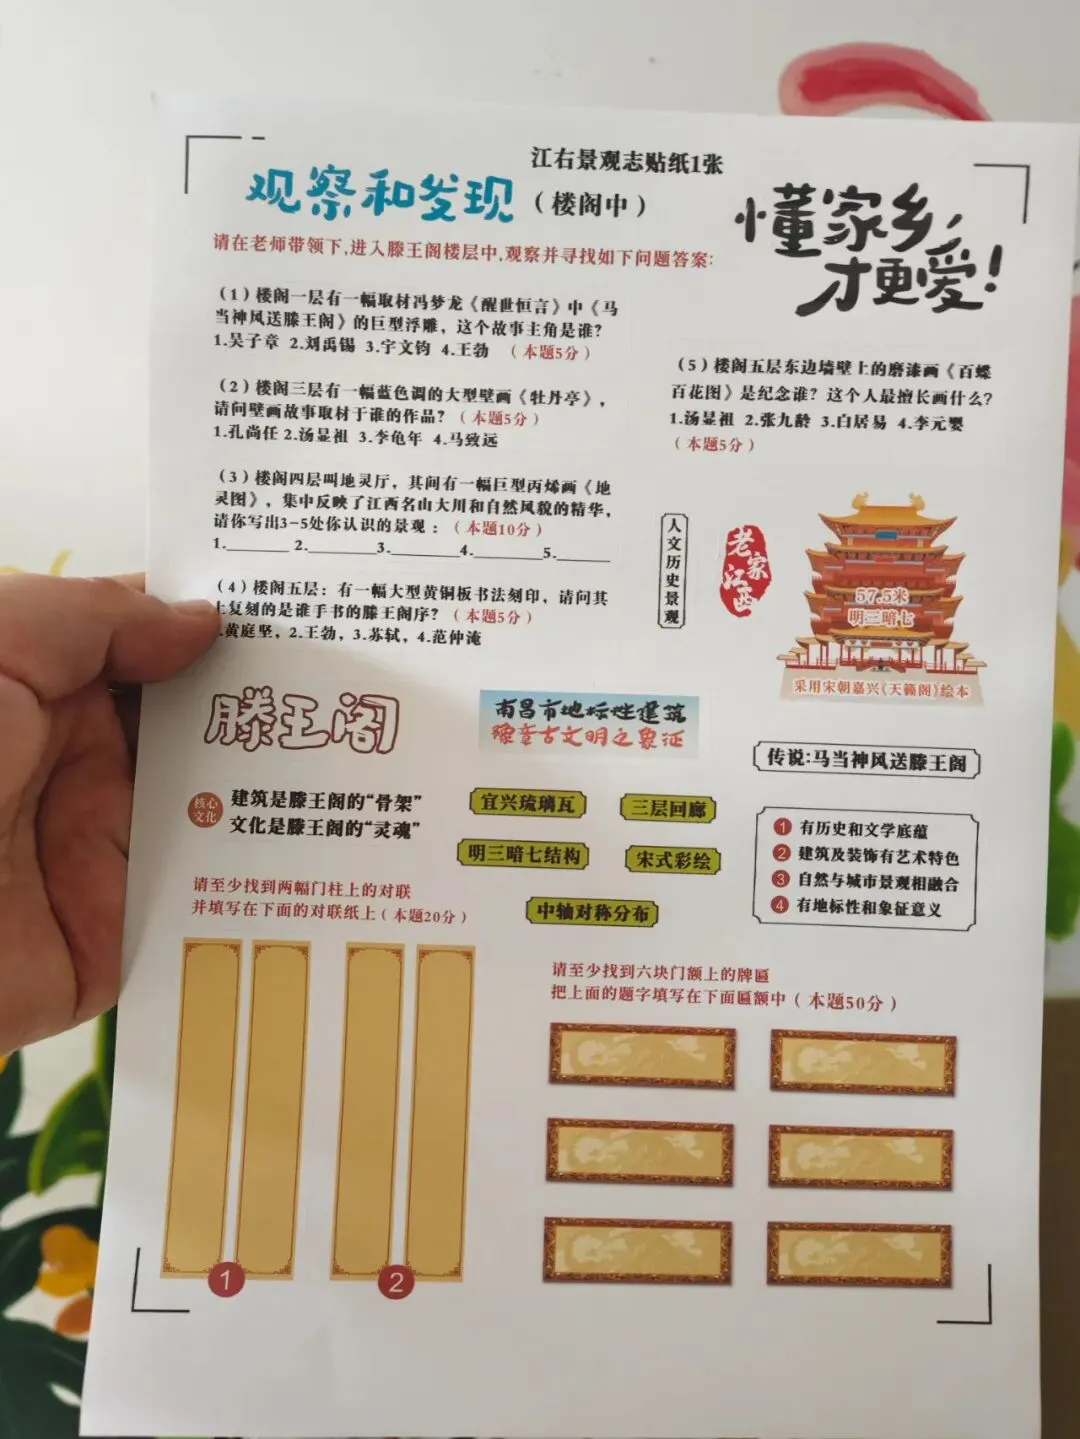 江右景观志贴纸1张
观察和发现（楼阁中）
懂家乡，
才更爱！
请在老师带领下,进入滕王阁楼层中,观察并寻找如下问题答案:
（1）楼阁一层有一幅取材冯梦龙《醒世恒言》中《马
当神风送滕王阁》的巨型浮雕，这个故事主角是谁？
1.吴子章 2.刘禹锡 3.宇文钧 4.王勃 （本题5分）
（2）楼阁三层有一幅蓝色调的大型壁画《牡丹亭》，
请问壁画故事取材于谁的作品？（本题5分）
1.孔尚任 2.汤显祖 3.李龟年 4.马致远
（3）楼阁四层叫地灵厅，其间有一幅巨型丙烯画《地
灵图》，集中反映了江西名山大川和自然风貌的精华，
请你写出3-5处你认识的景观：（本题10分）
1.______ 2.______3.______4.______5.______
（4）楼阁五层：有一幅大型黄铜板书法刻印，请问其
上复刻的是谁手书的滕王阁序？（本题5分）
.黄庭坚，2.王勃，3.苏轼，4.范仲淹
（5）楼阁五层东边墙壁上的磨漆画《百蝶
百花图》是纪念谁？这个人最擅长画什么？
1.汤显祖 2.张九龄 3.白居易 4.李元婴
（本题5分）
人文历史景观
老家江西
57.5米
明三暗七
采用宋朝嘉兴《天籁阁》绘本
滕王阁
南昌市地标性建筑
豫章古文明之象征
传说:马当神风送滕王阁
核心
文化
建筑是滕王阁的“骨架”
文化是滕王阁的“灵魂”
宜兴琉璃瓦
三层回廊
明三暗七结构
宋式彩绘
中轴对称分布
1 有历史和文学底蕴
2 建筑及装饰有艺术特色
3 自然与城市景观相融合
4 有地标性和象征意义
请至少找到两幅门柱上的对联
并填写在下面的对联纸上（本题20分）
1
2
请至少找到六块门额上的牌匾
把上面的题字填写在下面匾额中（本题50分）